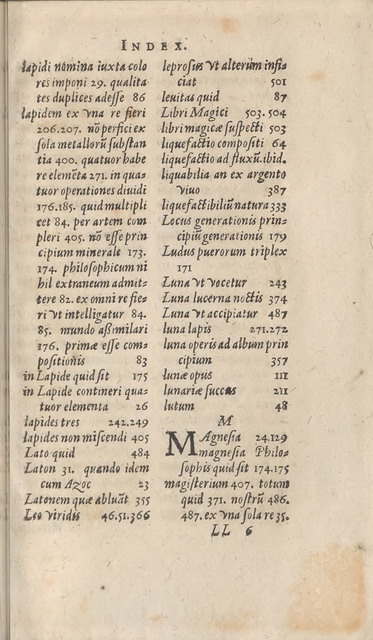 INDEX.
lapidi nomina iuxta colo
res imponi 29. qualita
tes duplices adesse 86
lapidem ex vna re fieri
206.207. nō perfici ex
sola metallorū substan
tia 400. quatuor habe
re elemēta 271. in qua-
tuor operationes diuidi
176.185. quid multipli
cet 84. per artem com
pleri 405. nō esse prin
cipium minerale 173.
174. philosophicum ni
hil extraneum admit-
tere 82. ex omni re fie-
ri vt intelligatur 84.
85. mundo aßimilari
176. primæ esse com-
positionis 83
in Lapide quid sit 175
in Lapide contineri qua-
tuor elementa 26
lapides tres 242.249
lapides non miscendi 405
Lato quid 484
Laton 31. quando idem
cum Azoc 23
Latonem quæ abluāt 355
Leo viridis 46.51.366
leprosus vt alterum infi-
ciat 501
leuitas quid 87
Libri Magici 503.504
libri magicæ suspecti 503
liquefactio compositi 64
liquefactio ad fluxū. ibid.
liquabilia an ex argento
viuo 387
liquefactibiliū natura 333
Locus generationis prin-
cipiū generationis 179
Ludus puerorum triplex
171
Luna vt vocetur 243
Luna lucerna noctis 374
Luna vt accipiatur 487
luna lapis 271.272
luna operis ad album prin
cipium 357
lunæ opus 111
lunariæ succus 211
lutum 48
M
MAgnesia 24.129
magnesia Philo-
sophis quid sit 174.175
magisterium 407. totum
quid 371. nostrū 486.
487. ex vna sola re 35.
LL 6